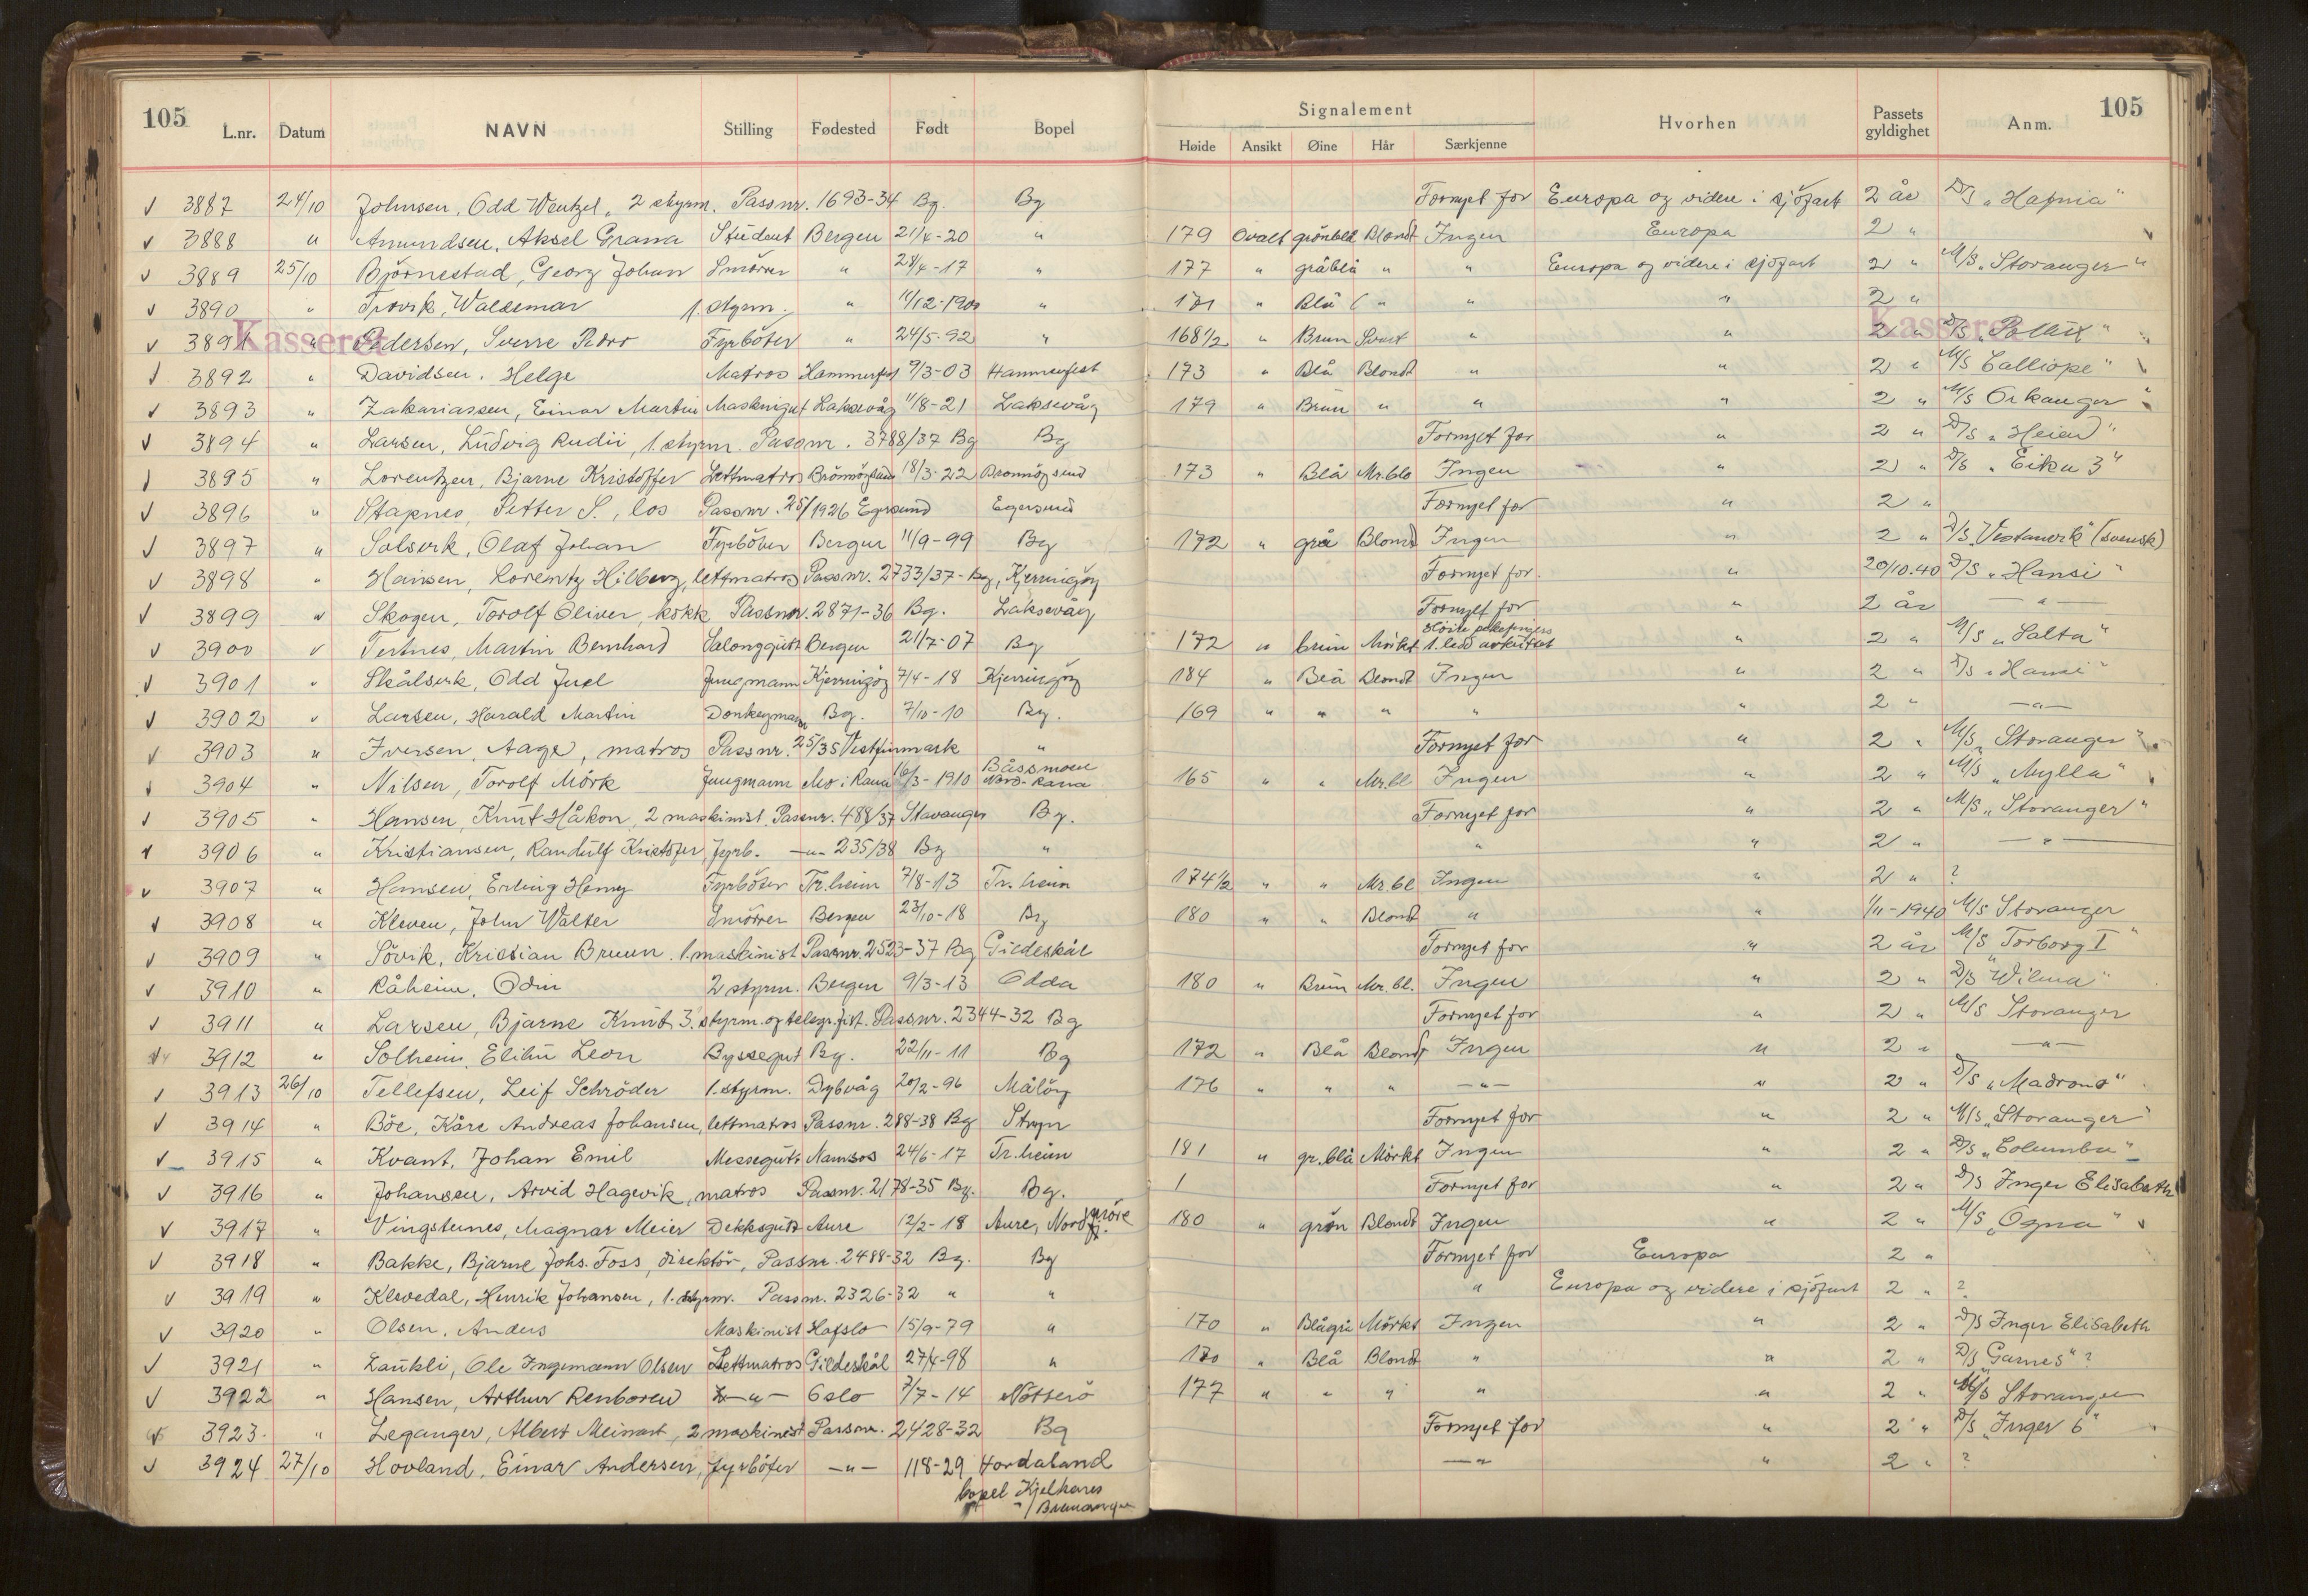 105 L.nr. Datum NAVN Stilling Fødested Født Bopel Signalement Hvorhen Passets gyldighet Anm. 105
Høide Ansikt Øine Hår Særkjenne
3887 24/10 Johnsen, Odd Wentzel, 2 styrm. Passnr. 1693-34 Bg. Bg Fornyet for Europa og videre i sjöfart 2 år D/S „Hafnia"
3888 " Amundsen, Aksel Grana Student Bergen 21/4-20 " 179 Ovalt grönblå Blondt Ingen Europa 2 "
3889 25/10 Björnestad, Georg Johan Smörer " 28/4-17 " 177 " gråblå " " Europa og videre i sjöfart 2 " M/S „Storanger"
3890 " Waldemar 1. styrm. " 11/12-1900 " 181 " Blå " " " 2 "
Kasseret Kasseret
3891 " Pedersen, Sverre Fyrböter " 24/5-92 " 168 1/2 " Brun Svart " " 2 " D/S „Pollux"
3892 " Davidsen, Helge Matros Hammerfest 9/3-03 Hammerfest 173 " Blå Blondt " " 2 " M/S Calliope"
3893 " Zakariassen, Einar Martin Maskingut Laksevåg 11/8-21 Laksevåg 179 " Brun " " " 2 " M/S Orkanger"
3894 " Larsen, Ludvig Rudii, 1. styrm. Passnr. 3788/37 Bg Bg Fornyet for " 2 " D/S „Heien"
3895 " Lorentzen, Bjarne Kristoffer Lettmatros Brönnöysund 18/3-22 Brönnöysund 173 " Blå Mr.blo Ingen " 2 " D/S „Eika 3"
3896 " Stapnes, Petter S., los Passnr. 25/1926 Egersund Egersund Fornyet for " 2 "
3897 " Solserk, Olaf Johan Fyrböter Bergen 11/9-99 Bg 172 " grå Blond Ingen " 2 " D/S „Vestanvik" (svensk)
3898 " Hansen, Lorentz Hilberg, lettmatros Passnr. 2733/37-Bg, Kjerringöy Fornyet for " 20/10.40 D/S „Hansi"
3899 " Skogen, Torolf Oliver, kokk Passnr. 2871-36 Bg. Laksevåg Fornyet for " 2 år — " —
3900 " Tertnes, Martin Bernhard Salonggutt Bergen 21/7-07 Bg 172 " brun Mörkt Höire pekefingers 1. ledd avkuttet " 2 " M/S „Salta"
3901 " Skålsvik, Odd Juel Jungmann Kjerringöy 7/4-18 Kjerringöy 184 " Blå Blondt Ingen " 2 " D/S „Hansi"
3902 " Larsen, Harald Martin Donkeymann Bg. 7/10-10 Bg. 169 " " " " " 2 " — " —
3903 " Iversen, Aage, matros Passnr. 25/35 Vestfinnmark " Fornyet for " 2 " M/S „Storanger"
3904 " Nilsen, Torolf Mörk Jungmann Mo i Rana 16/3-1910 Båssmoen Nord-Rana 165 " " Mr.bl Ingen " 2 " M/S „Mylla"
3905 " Hansen, Knut Håkon, 2 maskinist Passnr. 488/37 Stavanger Bg. Fornyet for " 2 " M/S „Storanger"
3906 " Kristiansen, Randulf Kristofer, Fyrb. —"— 235/38 Bg " " " 2 " — " —
3907 " Hansen, Erling Henry Fyrböter Tr.heim 7/8-13 Tr.heim 174 1/2 " " Mr.bl Ingen " 2 " ?
3908 " Kleven, John Walter Smörer Bergen 23/10-18 Bg 180 " " Blondt " " 1/11-1940 M/S Storanger
3909 " Sövik, Kristian Bruun. 1. maskinist Passnr. 2523-37 Bg Gildeskål Fornyet for " 2 år M/S Torborg I"
3910 " Råheim, Odin 2 styrm. Bergen 9/3-13 Odda 180 " Brun Mr.bl. Ingen " 2 " D/S „Wilma"
3911 " Larsen, Bjarne Knut 3. styrm. og telegr.fist. Passnr. 2344-32 Bg Fornyet for " 2 " M/S Storanger
3912 " Solheim, Elihu Leon Byssegut Bg. 22/11-11 Bg 172 " Blå Blondt Ingen " 2 " — " —
3913 26/10 Tellefsen, Leif Schröder 1. styrm. Dybvåg 20/2-96 Målöy 176 " " " —"— " 2 " D/S „Madrono"
3914 " Böe, Kåre Andreas Johansen, lettmatros Passnr. 288-38 Bg Stryn Fornyet for " 2 " M/S „Storanger"
3915 " Kvant, Johan Emil Messegutt Namsos 24/6-17 Tr.heim 181 " gr.blå Mörkt Ingen " 2 " D/S „Columba"
3916 " Johansen, Arvid Hagevik, matros Passnr. 2178-35 Bg. Bg. Fornyet for " 2 " D/S Inger Elisabeth
3917 " Vingsternes, Magnar Meier Dekksgutt Aure 12/2-18 Aure, Nordmöre 180 " grön Blondt Ingen " 2 " M/S „Ogna"
3918 " Bakke, Bjarne Johs. Foss, disektör, Passnr. 2488-32 Bg. Bg Fornyet for Europa 2 "
3919 " Klevedal, Henrik Johansen, 1. styrm. Passnr. 2326-32 " " " Europa og videre i sjöfart 2 " ?
3920 " Olsen, Anders Maskinist Hafslo 15/9-79 " 170 " Blågrå Mörkt Ingen " 2 " D/S Inger Elisabeth
3921 " Laukli, Ole Ingemann Olsen Lettmatros Gildeskål 27/4-98 " 170 " Blå Blondt " " 2 " D/S „Garnes" ?
3922 " Hansen, Arthur Renboren —"— Oslo 7/7-14 Nötterö 177 " " " " " 2 " M/S Storanger
3923 " Leganger, Albert Meinart, 2 maskinist Passnr. 2428-32 Bg Fornyet for " 2 " D/S „Inger 6"
3924 27/10 Hovland, Einar Andersen, fyrböter —"— 118-29 Hordaland —"— " 2 " ?
bopel Kjelkenes